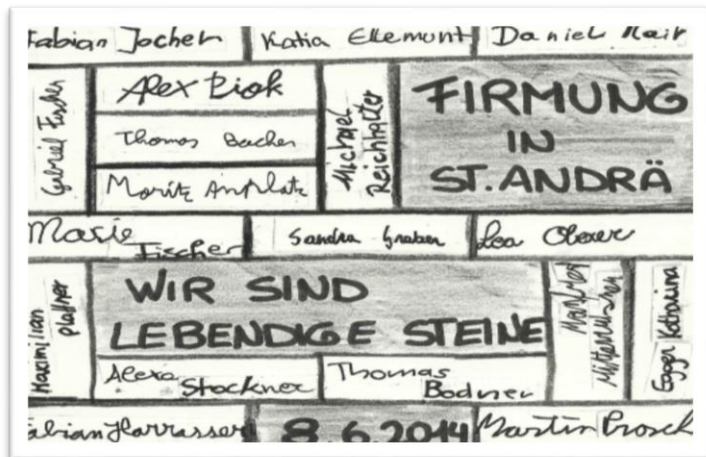 Fabian Jocher Katia Ellemunt Daniel Mair
Gabriel Fischer
Alex Piok
Thomas Bacher
Moritz Anplatz
Michael
Reichhalter
FIRMUNG
IN
ST. ANDRÄ
Marie
Fischer
Sandra Graber
Lea Oberer
Maximilian
Plattner
WIR SIND
LEBENDIGE STEINE
Manfred
Mitterrutzner
Egger Katharina
Alexa
Stockner
Thomas
Bodner
Fabian Harrasser 8.6.2014 Martin Prosch